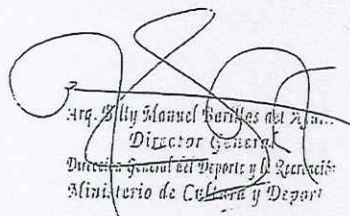 Arq. Billy Manuel Barillas del
Director General
Dirección General del Deporte y la Recreación
Ministerio de Cultura y Deport